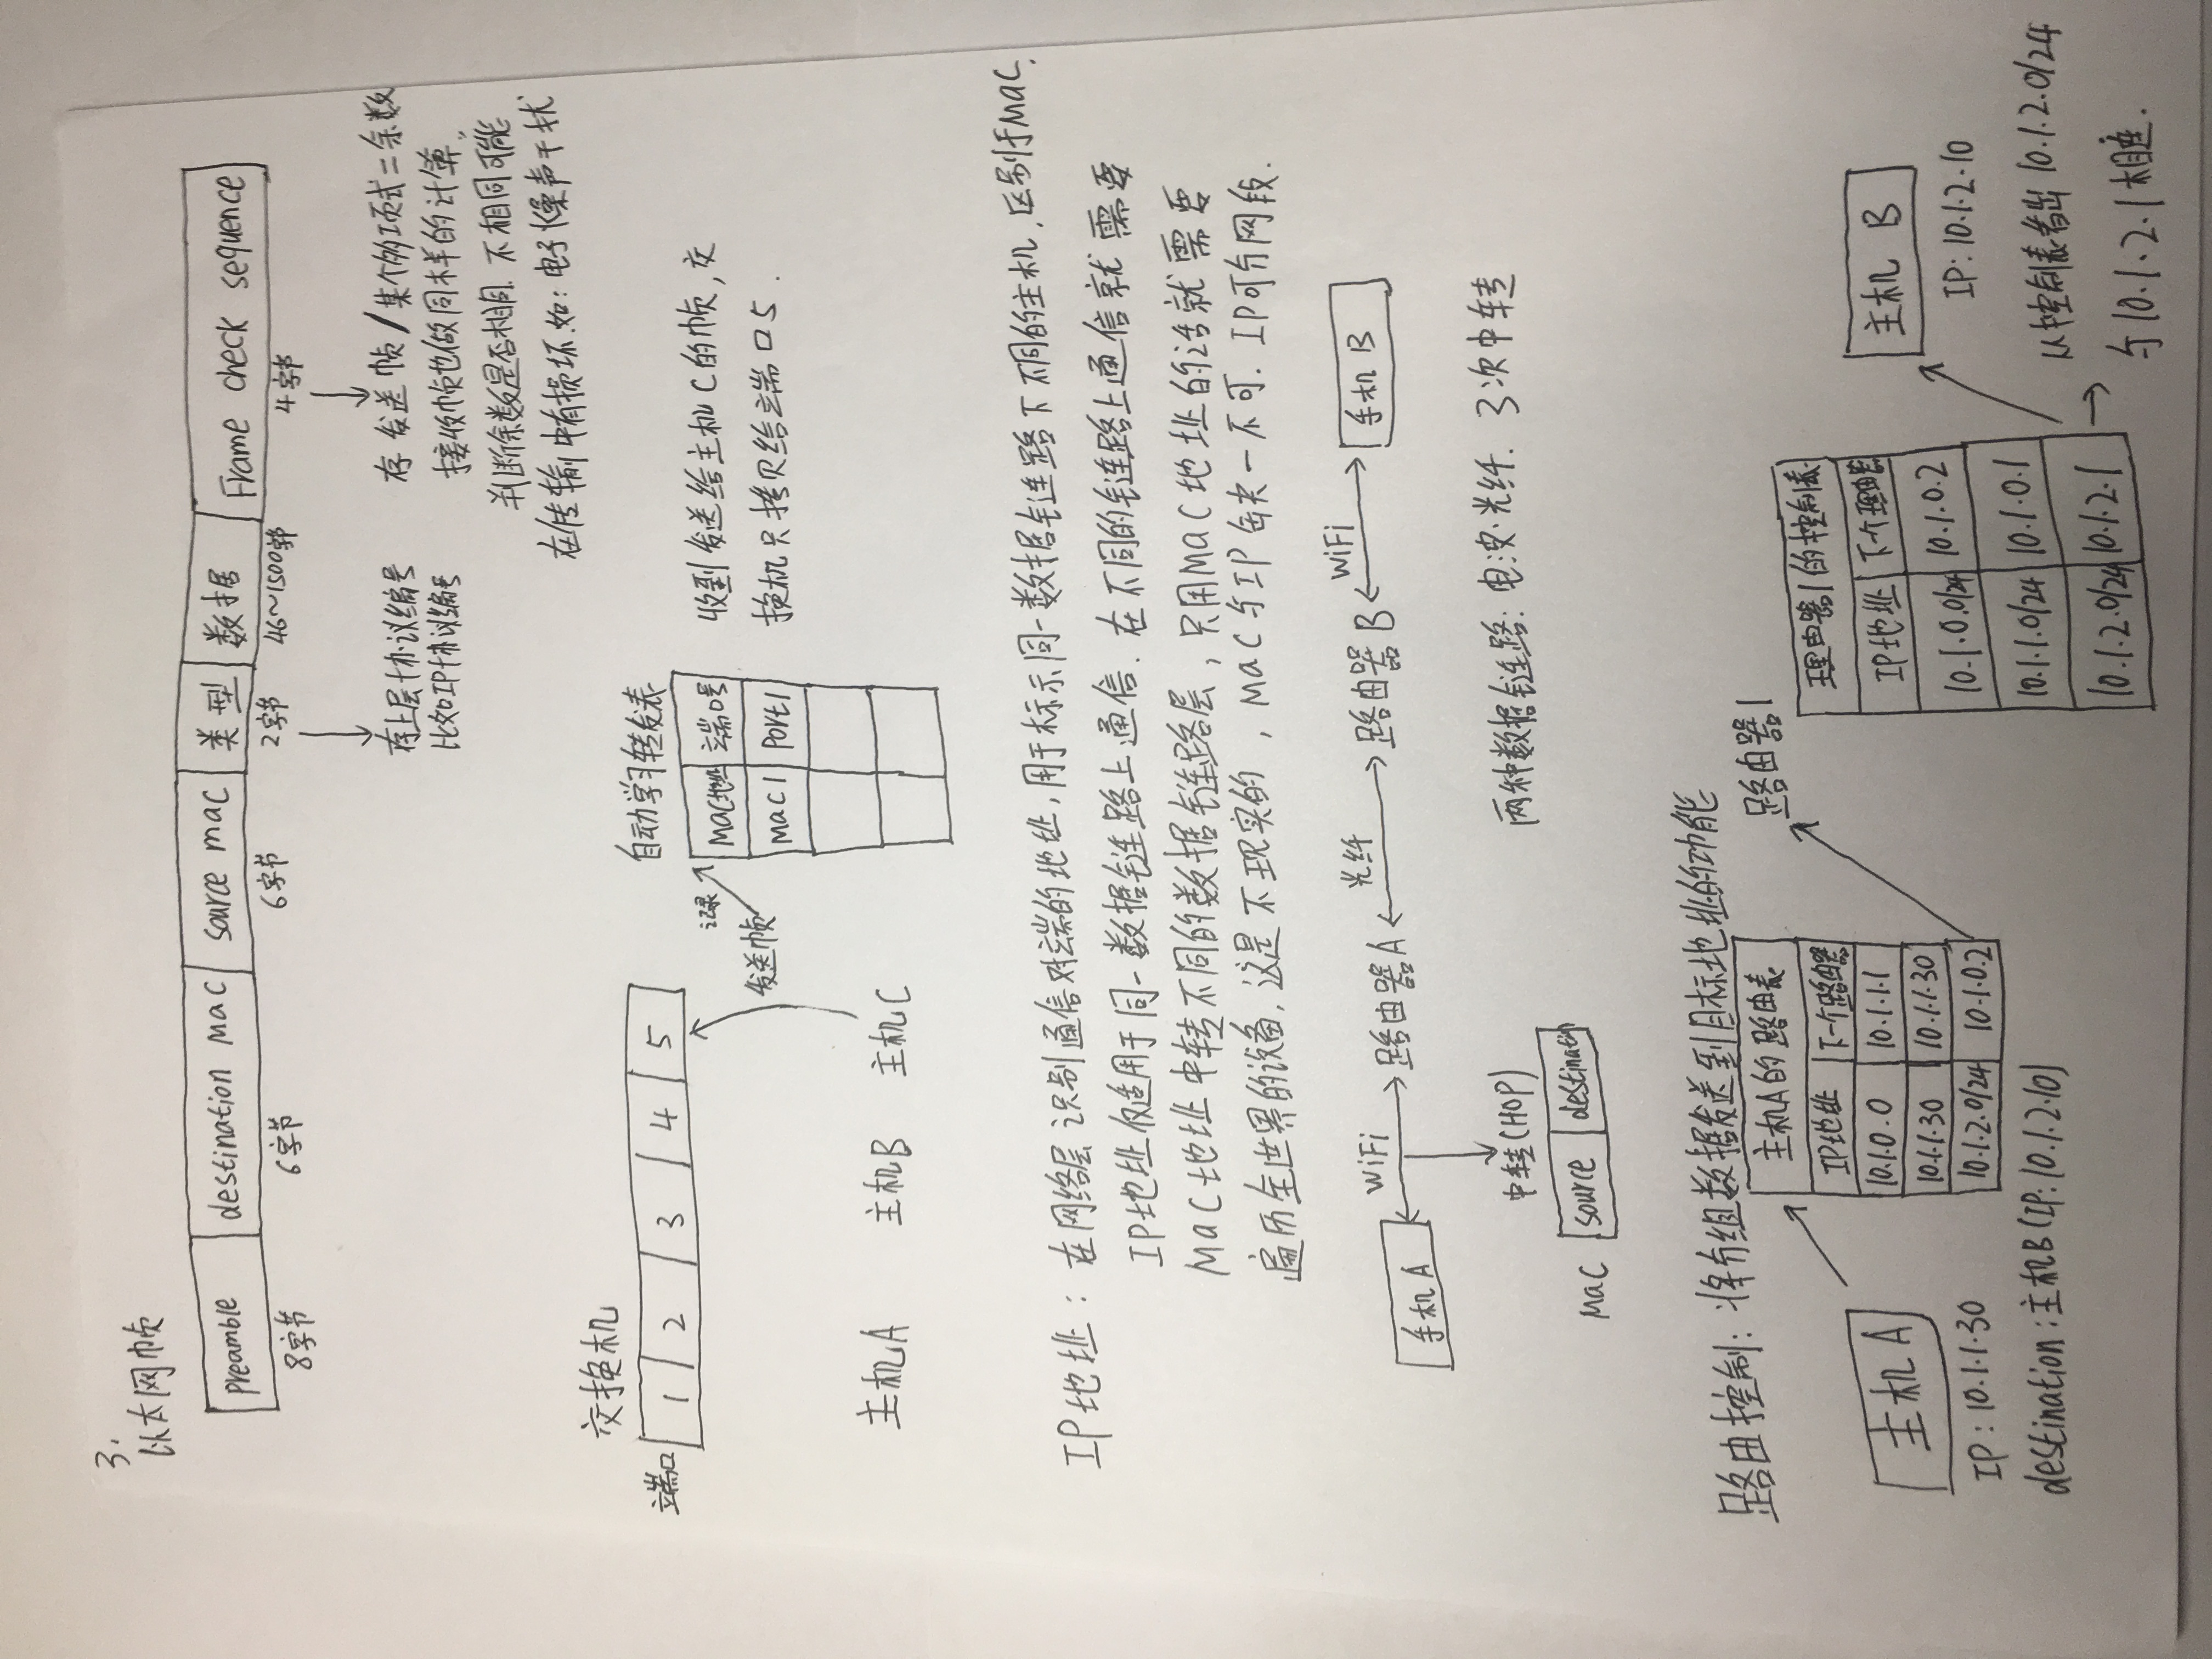 3.
以太网帧
preamble destination MAC source mac 类型 数据 Frame check sequence
8字节 6字节 6字节 2字节 46~1500字节 4字节
存上层协议编号
比如IP协议编号
存 发送帧/某个多项式=余数
接收帧也做同样的计算.
判断余数是否相同. 不相同可能
在传输中有损坏.如:电子噪声干扰
交换机
端口 1 2 3 4 5
发送帧
记录
主机A 主机B 主机C
自动学习转发表
MAC地址 端口号
MAC1 Port1
收到发送给主机C的帧,交
换机只拷贝给端口5.
IP地址: 在网络层识别通信对端的地址,用于标示同一数据链路下不同的主机.区别于MAC.
IP地址仅适用于同一数据链路上通信. 在不同的链路上通信就需要
MAC地址中转不同的数据链路层,只用MAC地址的话就需要
遍历全世界的设备.这是不现实的,MAC与IP缺一不可. IP可分网段.
手机A WiFi 路由器A 光纤 路由器B WiFi 手机B
中转(HOP)
MAC source destination
两种数据链路: 电波·光纤. 3次中转
路由控制: 将分组数据发送到目标地址的功能
主机A
IP: 10.1.1.30
destination:主机B(IP:10.1.2.10)
主机A的路由表
IP地址 下一个路由器
10.1.0.0 10.1.1.1
10.1.1.30 10.1.1.30
10.1.2.0/24 10.1.0.2
路由器1
理由器1的控制表
IP地址 下个理由器
10.1.0.0/24 10.1.0.2
10.1.1.0/24 10.1.0.1
10.1.2.0/24 10.1.2.1
主机 B
IP: 10.1.2.10
从控制表看出 10.1.2.0/24
与10.1.2.1相连.